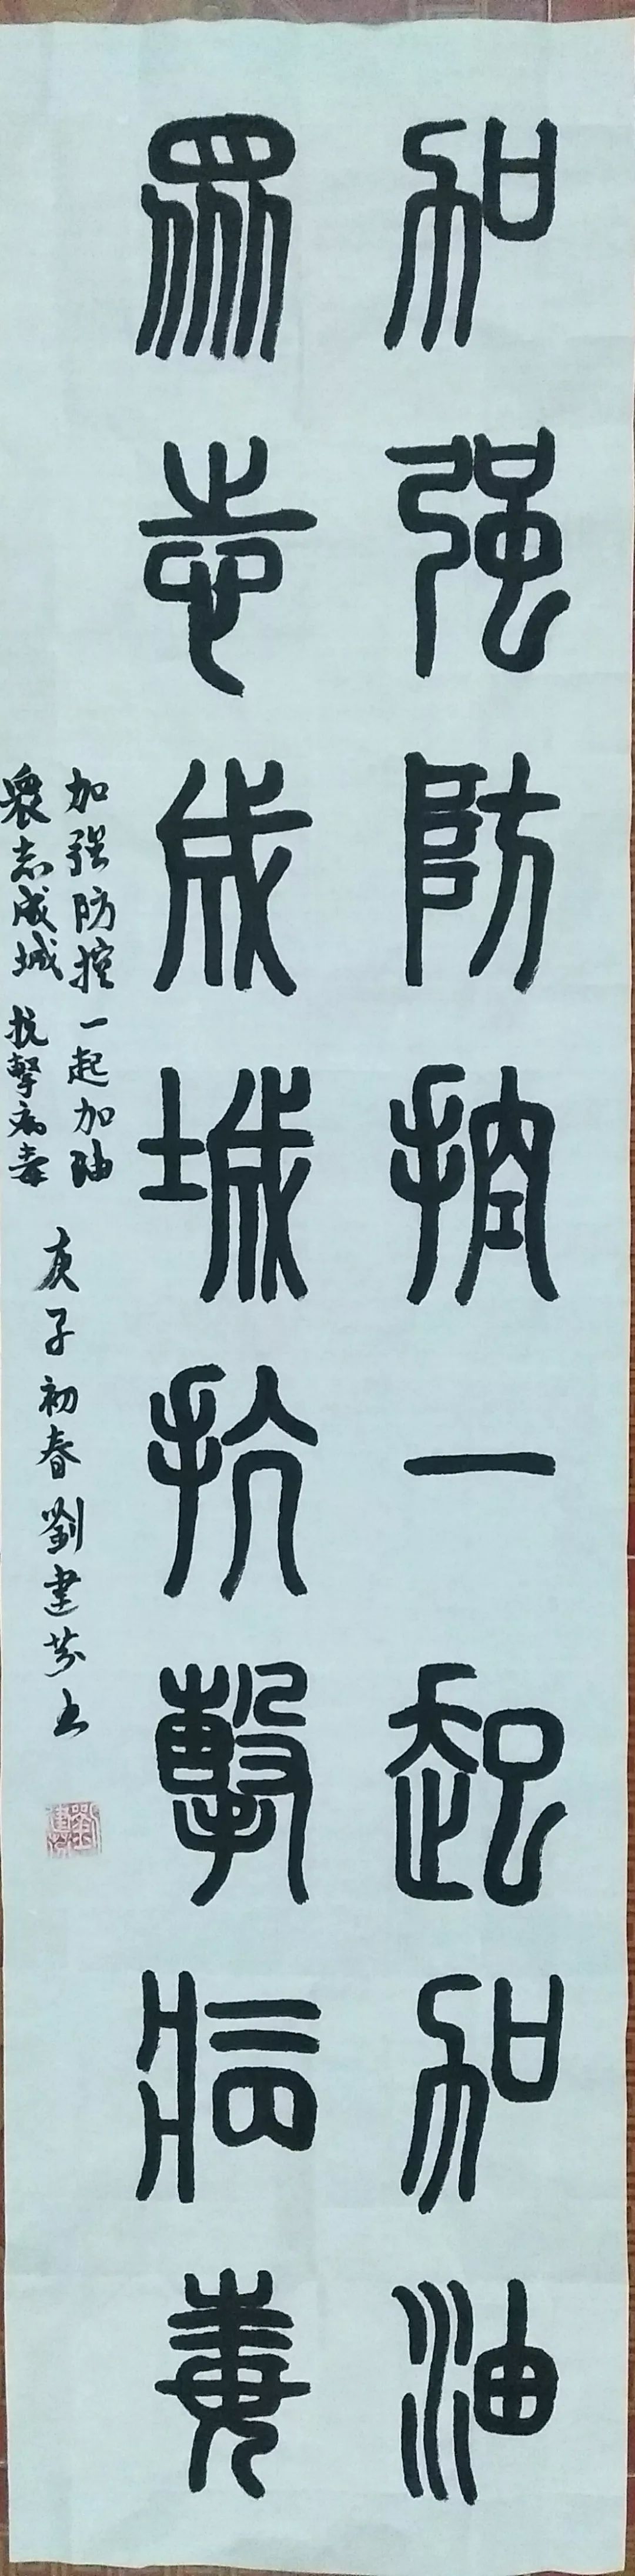 加强防控一起加油
眾志成城抗擊病毒
加强防控一起加油
眾志成城抗擊病毒
庚子初春劉建芬书